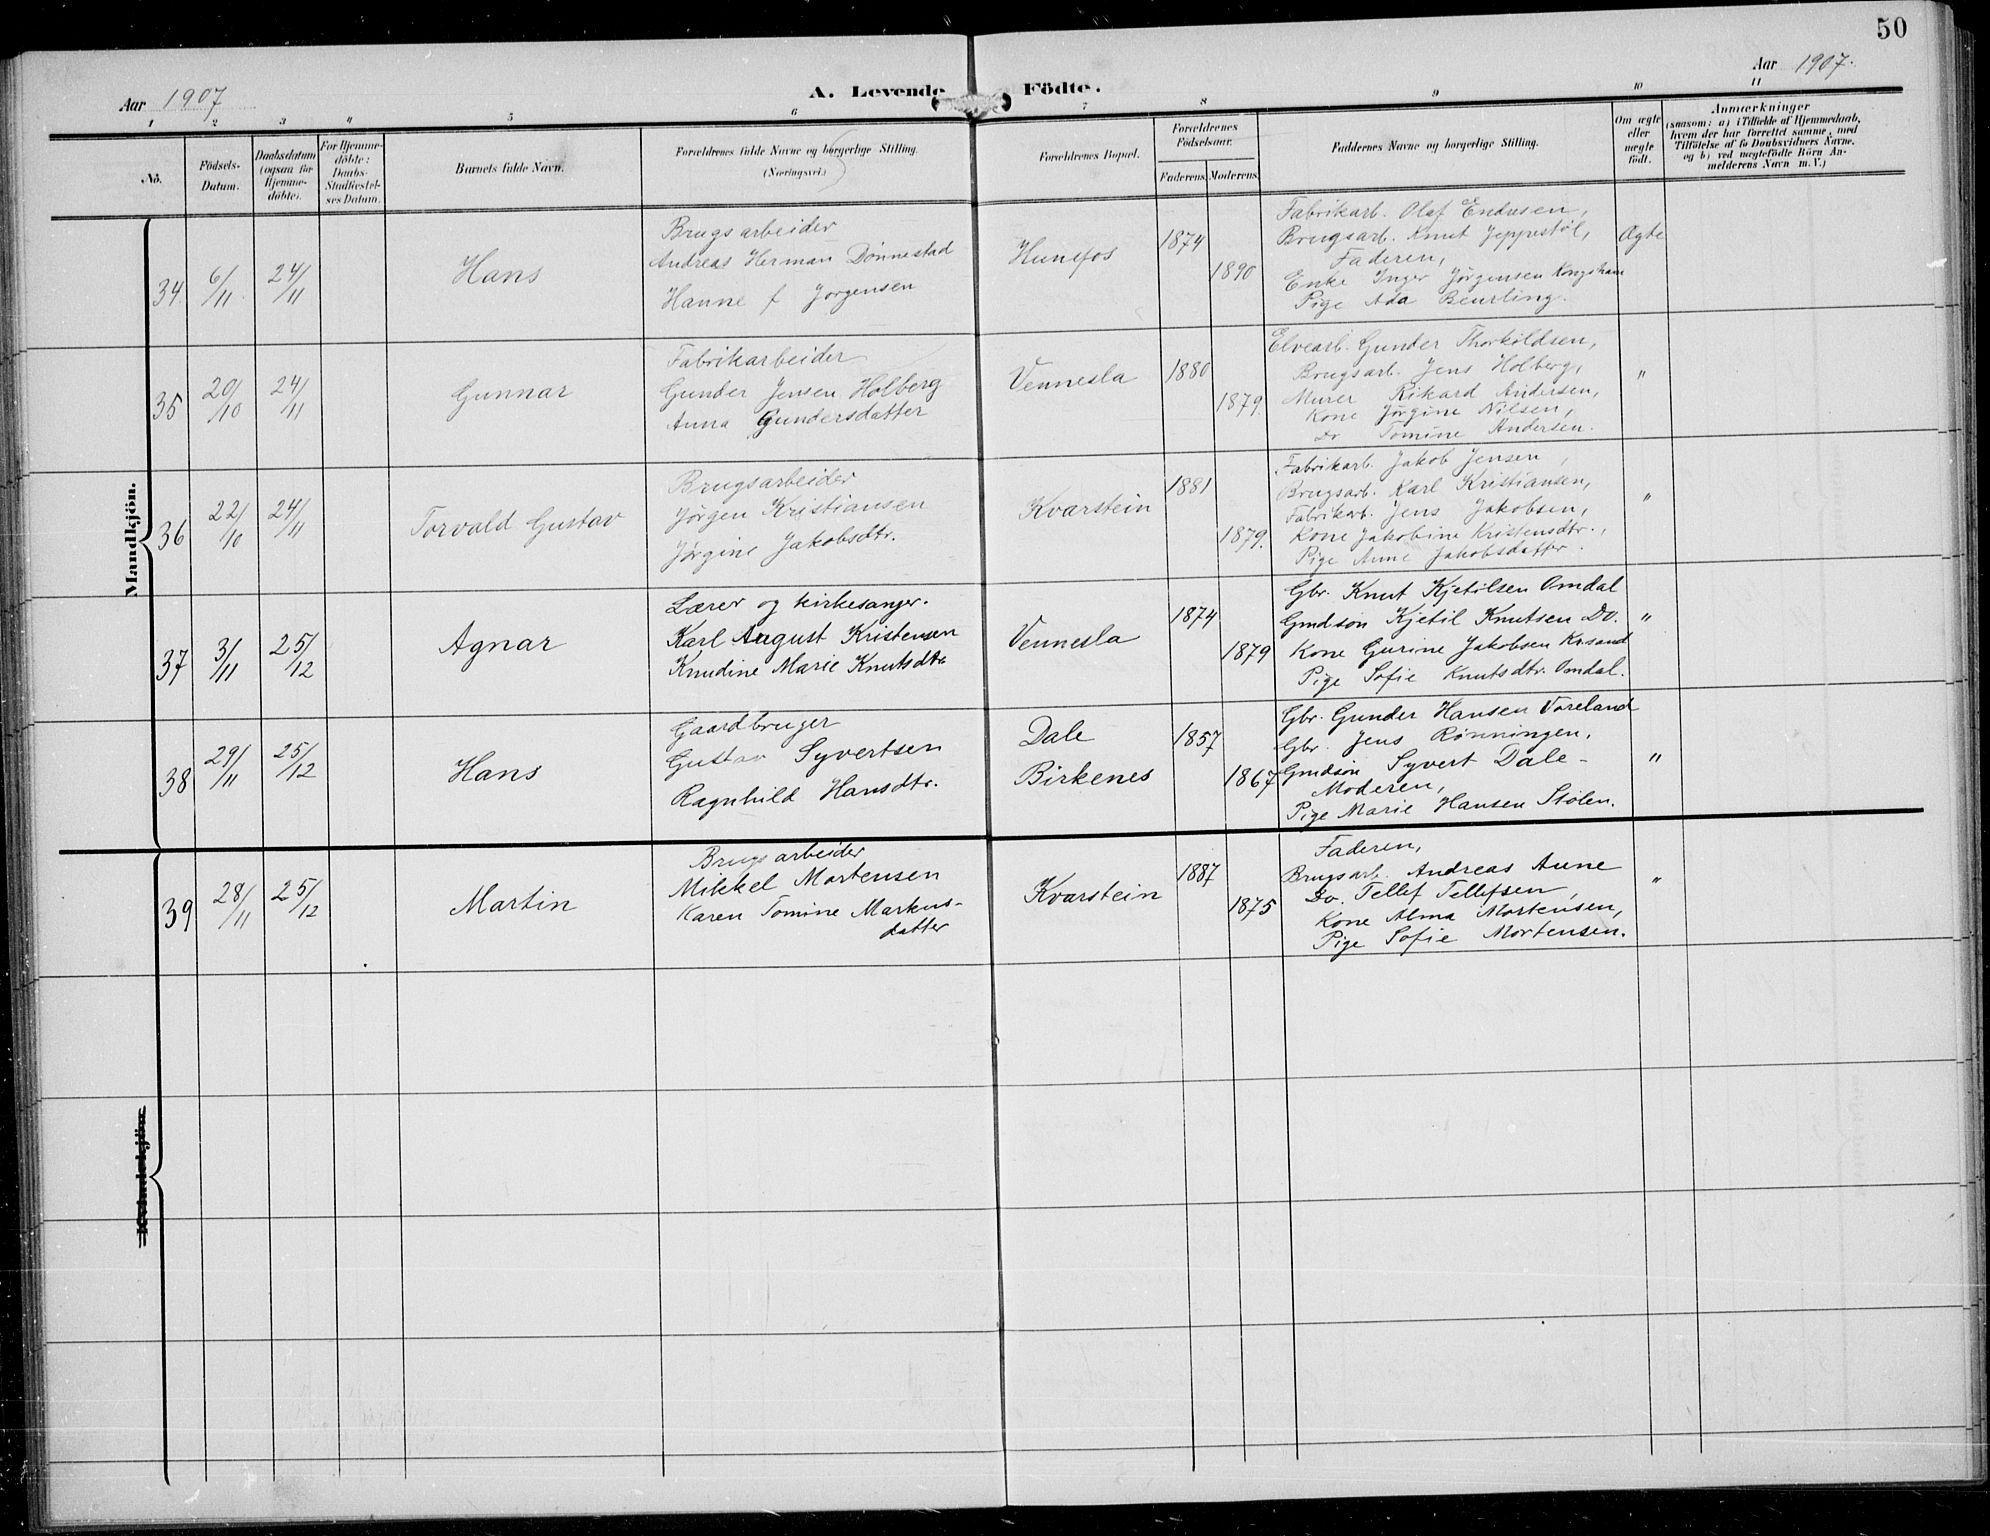 50
Aar 1907
A. Levende Födte.
Aar 1907.
1 2 3 4 5 6 7 8 9 10 11
No.
Födsels-
Datum.
Daabsdatum
(ogsaa for
Hjemme-
döbte).
For Hjemme-
döbte:
Daabs-
Stadfæstel-
ses Datum.
Barnets fulde Navn.
Forældrenes fulde Navne og borgerlige Stilling.
(Næringsvei.)
Forældrenes Bopæl.
Forældrenes
Födselsaar.
Faderens. Moderens.
Faddernes Navne og borgerlige Stilling.
Om ægte
eller
uægte
födt.
Anmærkninger
(saasom: a) i Tilfælde af Hjemmedaab,
hvem der har forrettet samme, med
Tilföielse af to Daabsvidners Navne.
og b) ved uægtefödte Börn An-
melderens Navn m. V.)
Mandkjön.
34. 6/11 24/11
Hans
Brugsarbeider
Andreas Herman Dønnestad
Hanne f Jørgensen
Hunsfos
1874
1890
Fabrikarb. Olaf Endresen,
Brugsarb. Knut Jeppestøl,
Faderen,
Enke Inger Jörgensen Kongsham
Pige Ada Beurling.
Ægte
35 20/10 24/11
Gunnar
Fabrikarbeider
Gunder Jensen Holberg
Anna Gundersdatter
Vennesla
1880
1879
Elvearb. Gunder Thorkildsen,
Brugsarb. Jens Holberg,
Murer Rikard Andersen,
Kone Jørgine Nilsen,
Do Tomine Andersen.
"
36 22/10 24/11
Torvald Gustav
Brugsarbeider
Jørgen Kristiansen
Jørgine Jakobsdtr.
Kvarstein
1881
1879.
Fabrikarb. Jakob Jensen,
Brugsarb. Karl Kristiansen,
Fabrikarb. Jens Jakobsen,
Kone Jakobine Kristensdtr.,
Pige Anne Jakobsdatter.
"
37 3/11 25/12
Agnar
Lærer og kirkesanger.
Karl August Kristensen
Knudine Marie Knutsdtr
Vennesla
1874
1879
Gbr. Knut Kjetilsen Omdal
Gmdsön Kjetil Knutsen Do.
Kone Gurine Jakobsen Krsand
Pige Sofie Knutsdtr. Omdal.
"
38 29/11 25/12
Hans
Gaardbruger
Gustav Syvertsen
Ragnhild Hansdtr.
Dale
Birkenes
1857
1867
Gbr. Gunder Hansen Voreland
Gbr. Jens Rønningen,
Gmdsön Syvert Dale -
Moderen,
Pige Marie Hansen Stölen.
"
39 28/11 25/12
Martin
Brugsarbeider
Mikkel Mortensen
Karen Tomine Markus-
datter
Kvarstein
1887
1875
Faderen,
Brugsarb. Andreas Aune
Do. Tellef Tellefsen,
Kone Alma Mortensen,
Pige Sofie Mortensen.
"
Kvindekjön.